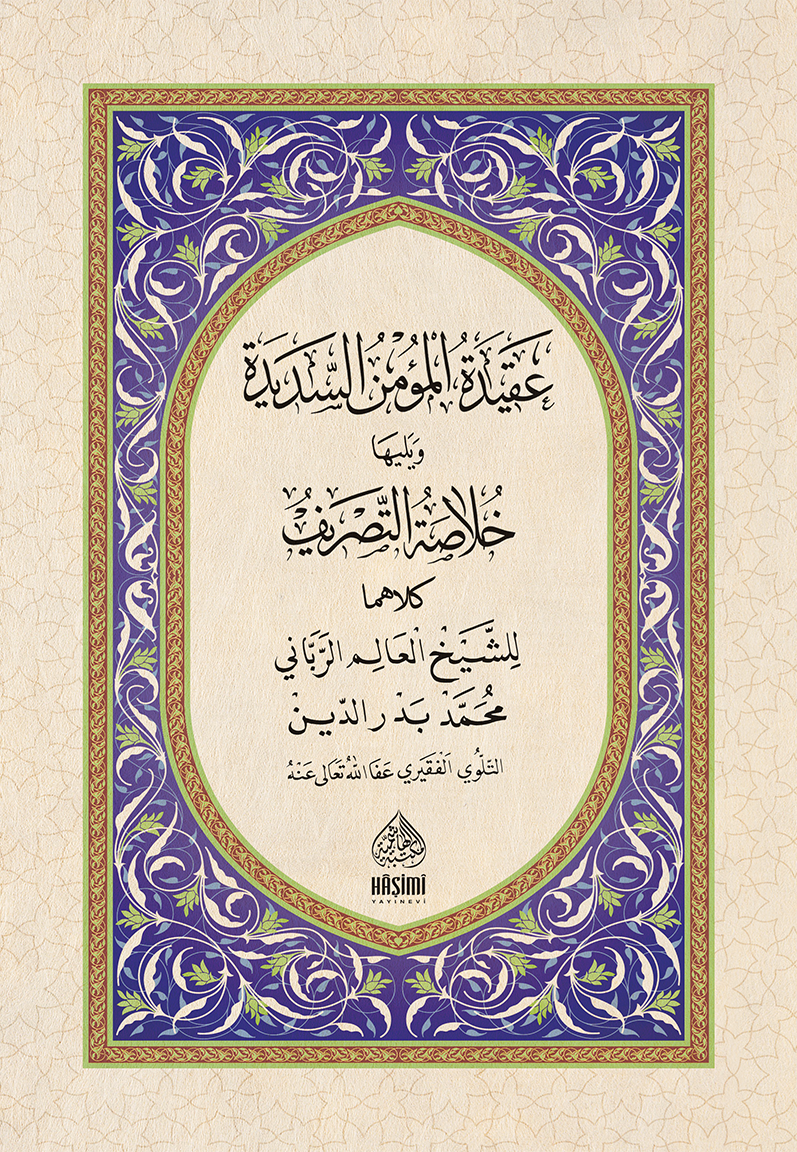 عَقِيدَةُ الْمُؤْمِنِ السَّدِيدَةُ
وَيَلِيهَا
خُلَاصَةُ التَّصْرِيفِ
كلاهما
لِلشَّيْخِ الْعَالِمِ الرَّبَّانِي
مُحَمَّدْ بَدْرِ الدّين
التِلّوِي الْفَقِيرِي عَفَا اللهُ تَعَالَى عَنْهُ
المكتبة الهاشمية
HÂŞİMÎ
YAYINEVİ